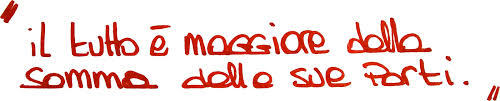 " il tutto è maggiore della
somma delle sue parti. "